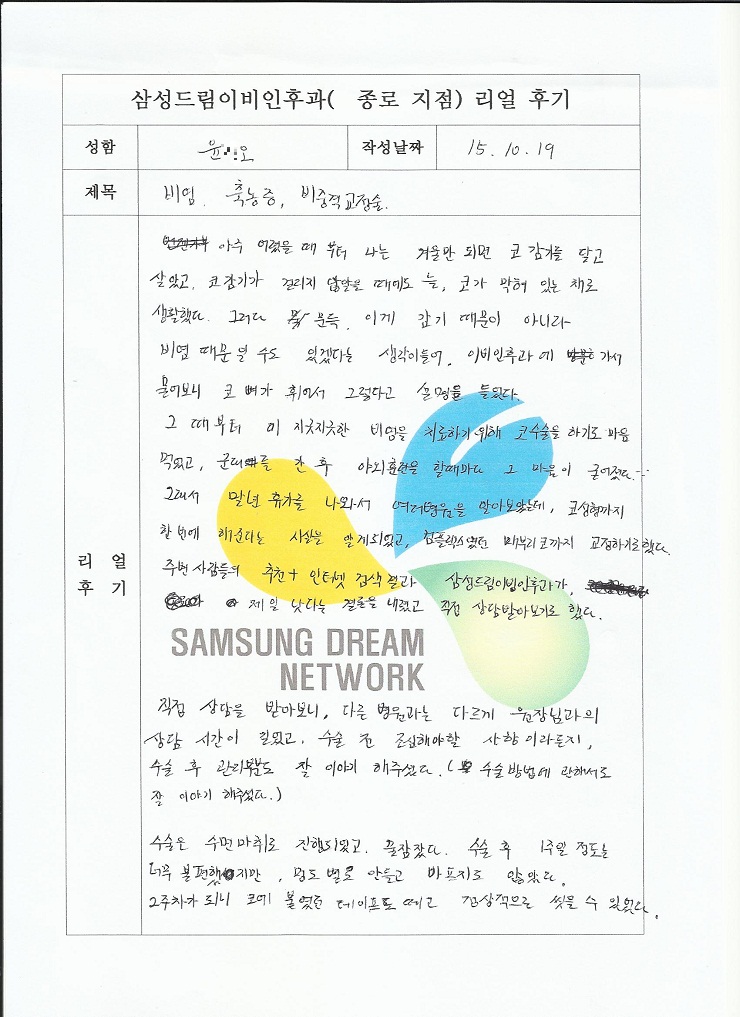 삼성드림이비인후과( 종로 지점) 리얼 후기
성함 윤 오 작성날짜 15. 10. 19
제목 비염. 축농증, 비중격교정술.
리 얼
후 기
아주 어렸을 때 부터 나는 겨울만 되면 코 감기를 달고
살았고, 코감기가 걸리지 않았을 때에도 늘, 코가 막혀 있는 채로
생활했다. 그러다 문득, 이게 감기 때문이 아니라
비염 때문 일 수도 있겠다는 생각이들어, 이비인후과에 가서
물어보니 코 뼈가 휘어서 그렇다고 설명을 들었다.
그 때부터 이 지긋지긋한 비염을 치료하기 위해 코수술을 하기로 마음
먹었고, 군대를 간 후 야외훈련을 할때마다 그 마음이 굳어졌다...
그래서 말년 휴가를 나와서 여러병원을 알아보았는데, 코성형까지
한 번에 해준다는 사실을 알게되었고, 컴플렉스였던 매부리코까지 교정하기로했다.
주변사람들의 추천 + 인터넷 검색 결과 삼성드림이비인후과가,
제일 낫다는 결론을 내렸고 직접 상담받아보기로 했다.
SAMSUNG DREAM
NETWORK
직접 상담을 받아보니, 다른 병원과는 다르게 원장님과의
상담 시간이 길었고, 수술 전 조심해야할 사항이라든지,
수술 후 관리법도 잘 이야기 해주셨다. ( 수술방법에 관해서도
잘 이야기 해주셨다.)
수술은 수면마취로 진행되었고. 꿀잠잤다. 수술 후 1주일 정도는
너무 불편했지만, 멍도 별로 안들고 아프지도 않았다.
2주차가 되니 코에 붙였던 테이프도 떼고 정상적으로 씻을 수 있었다.